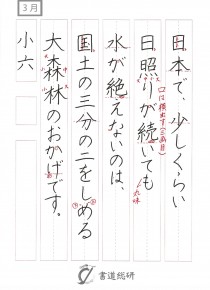 3月
日本で、少しくらい
日照りが続いても
水が絶えないのは、
国土の三分の二をしめる
大森林のおかげです。
小六
書道総研